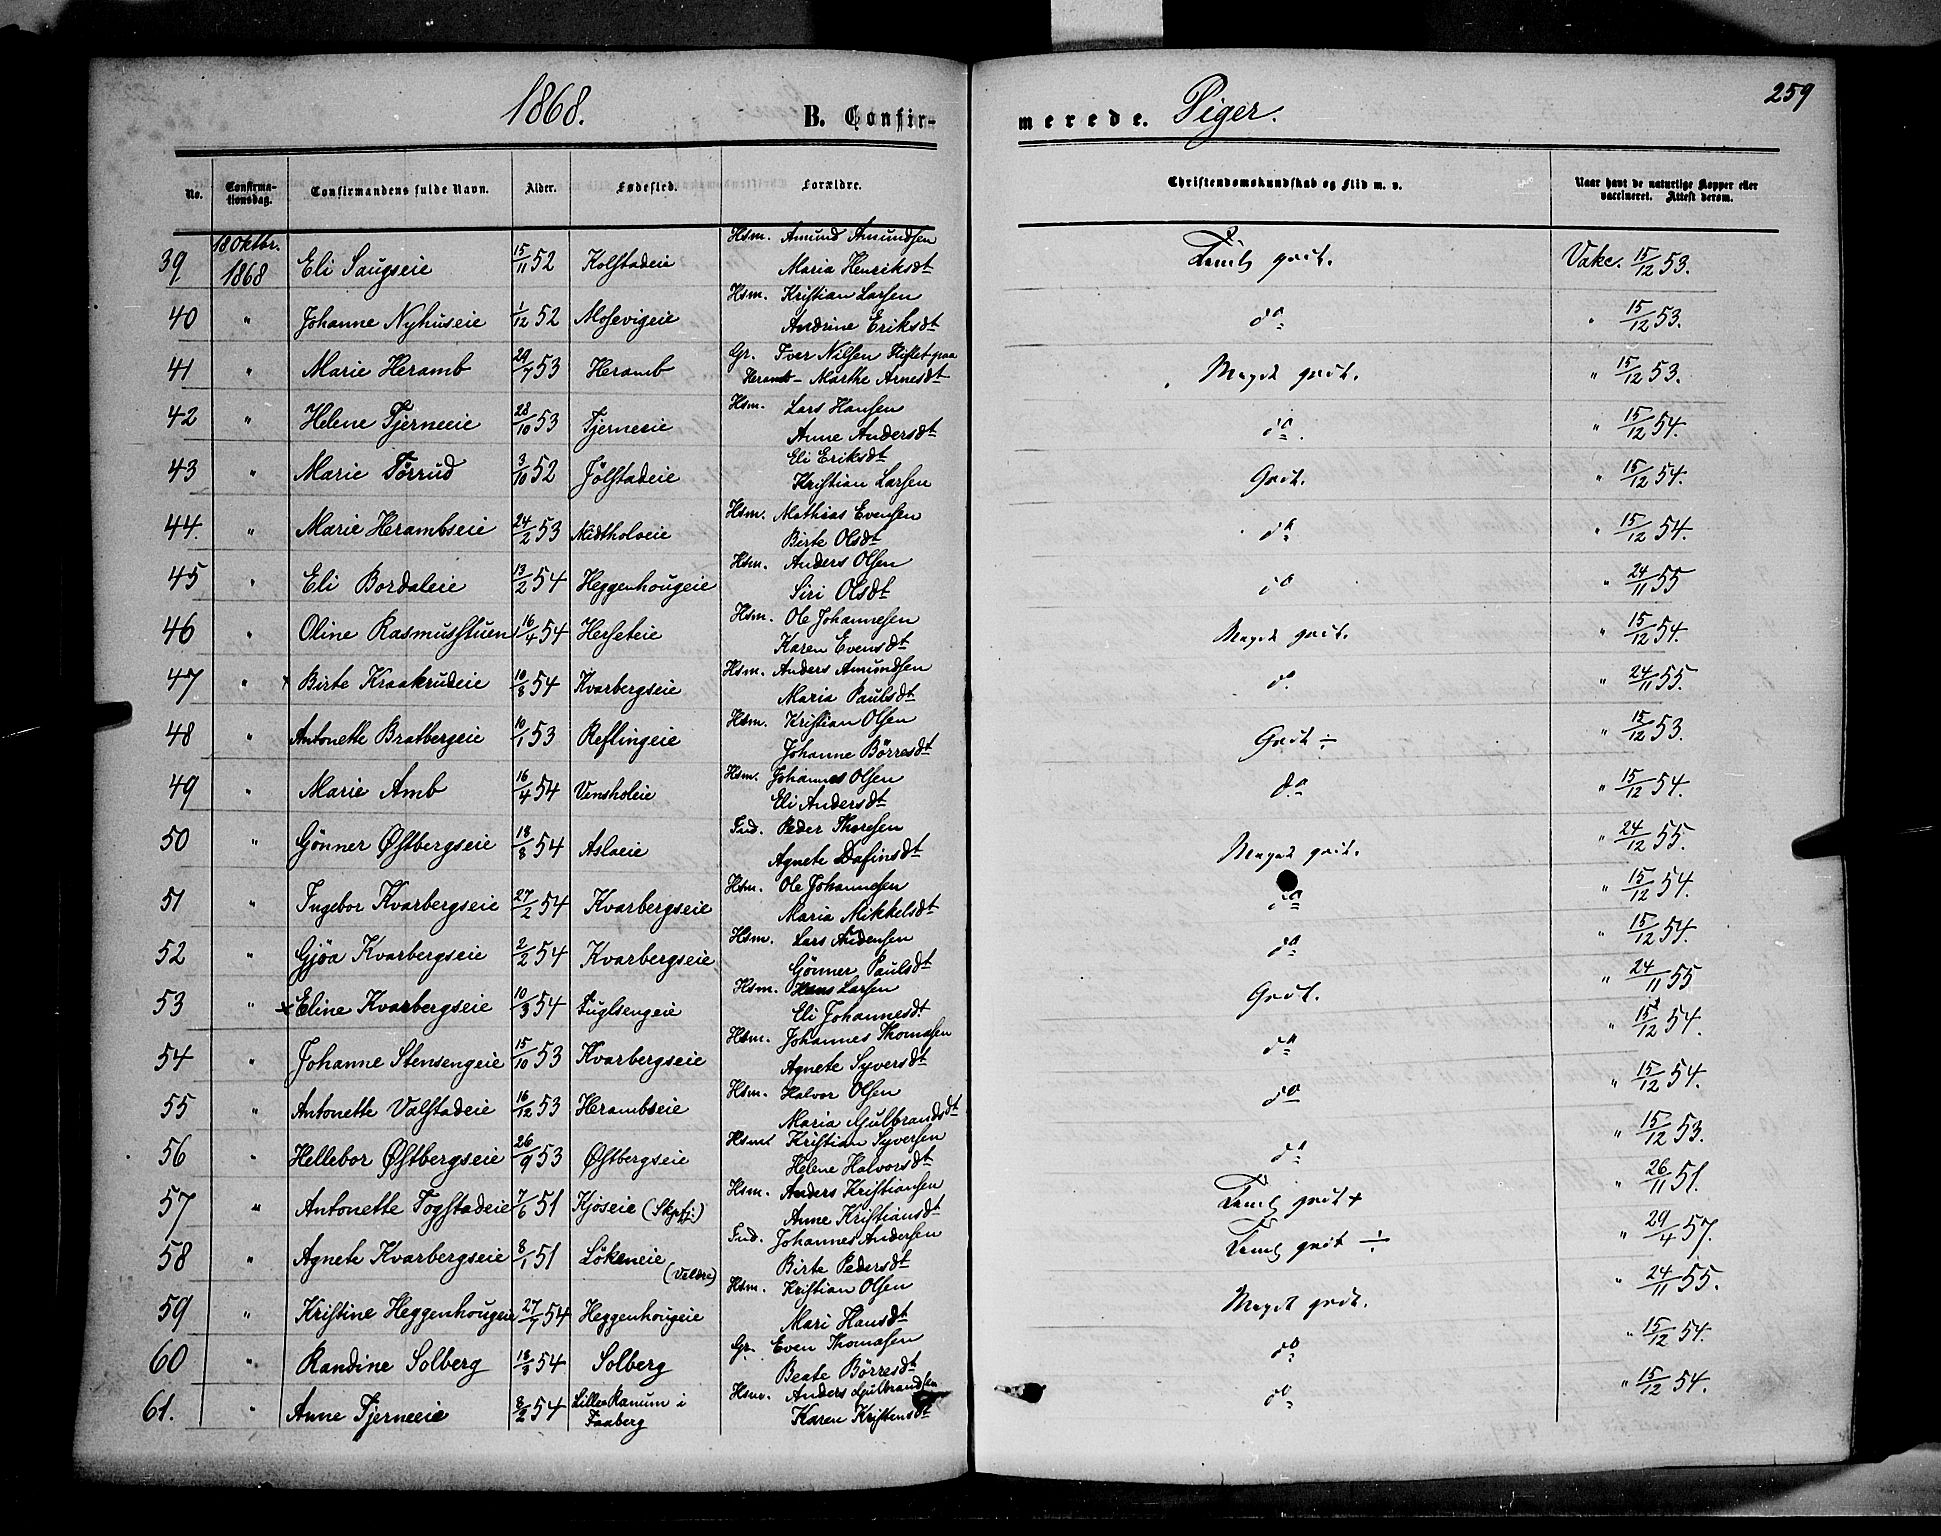 1868. B. Confirmerede. Piger. 259
No. Confirmationsdag. Confirmandens fulde Navn. Alder. Fødested. Forældre. Christendomskundskab og Flid m. v. Naar havt de naturlige Kopper eller vaccineret. Attest derom.
39 18 Oktbr. 1868 Eli Saugseie 15/11 52 Kolstadeie Hsm. Amund Amundsen Maria Henriksdt Teml. godt. Vakc. 15/12 53.
40 " Johanne Nyhuseie 1/12 52 Mosevigeie Hsm. Kristian Larsen Andrine Eriksdt do " 15/12 53.
41 " Marie Heramb 29/7 53 Heramb Gr. Iver Nilsen Heramb - Marthe Arnesdt Meget godt. " 15/12 53.
42 " Helene Tjerneeie 28/10 53 Tjerneeie Hsm. Lars Hansen Anne Andersdt do. " 15/12 54.
43 " Marie Tørrud 3/10 52 Jölstadeie Eli Eriksdt Kristian Larsen Godt. " 15/12 54.
44. " MarieHerambseie 24/2 53 Midtholoeie Hsm. Mathias Evensen Birte Olsdt do " 15/12 54.
45 " Eli Bordaleie 13/2 54 Heggenhougeie Hsm. Anders Olsen Siri Olsdt do " 24/11 55
46 " Oline Rasmusstuen 16/4 54 Herseteie Hsm. Ole Johannesen Karen Evensdt Meget godt. " 15/12 54.
47 " x Birte Kraakrudeie 10/8 54 Kvarbergseie Hsm. Anders Amundsen Maria Paulsdt do " 24/11 55.
48 " Antonette Bratbergeie 10/1 53 Reflingeie Hsm. Kristian Olsen Johanne Börresdt Godt ÷ " 15/12 53.
49 " Marie Amb 16/4 54 Vensholeie Hsm. Johannes Olsen Eli Andersdt do " 15/12 54.
50 " Gönner Østbergseie 18/8 54 Asloeie Ind. Peder Thoresen Agnete Dafinsdt Meget godt. " 24/12 55.
51 " Ingebor Kvarbergseie 27/2 54 Kvarbergseie Hsm. Ole Johannesen Maria Mikkelsdt do " 15/12 54.
52 " Gjøa Kvarbergseie 2/2 54 Kvarbergseie Hsm. Lars Audensen Gönner Paulsdt do " 15/12 54.
53 " x Eline Kvarbergseie 10/3 54 Fuglsengeie Hsm. Hans Larsen Eli Johannesdt. Godt. " 24/11 55
54 " Johanne Stensengeie 15/10 53 Kvarbergseie Hsm. Johannes Thomasen Agnete Syversdt do " 15/12 54.
55 " Antonette Valstadeie 16/12 53 Herambseie Hsm. Halvor Olsen Maria Gulbrandsdt do " 15/12 54.
56 " Hellebor Østbergseie 26/9 53 Østbergseie Hsm. Kristian Syversen Helene Halvorsdt do " 15/12 53.
57 " Antonette Togstadeie 7/6 51 Kjoseie Hsm. Anders Kristiansen Anne Kristiansdt Teml. godt + " 26/11 51.
58 " Agnete Kvarbergseie 8/1 51 Lökeneie (Veldre) Ind. Johannes Andersen Birte Pedersdt Teml. godt ÷ " 29/4 57.
59 " Kristine Heggenhougeie 27/7 54 Heggenhougeie Hsm. Kristian Olsen Mari Hansdt Meget godt. " 24/11 55.
60 " Randine Solberg 18/3 54 Solberg Gr. Even Thomasen Beate Börresdt do " 15/12 54.
61. " Anne Tjerneeie 8/2 54 Lille Ranum i Faaberg Hsm. Anders Gulbrandsen Karen Kristensdt do " 15/12 54.